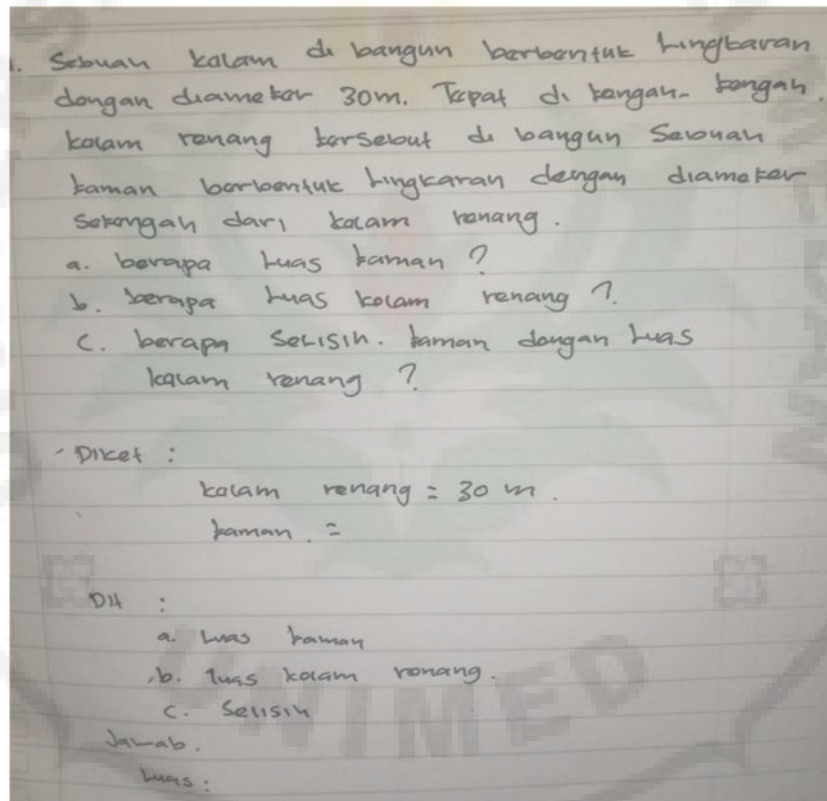 1. Sebuah kolam di bangun berbentuk Lingkaran
dengan diameter 30m. Tepat di tengah-tengah
kolam renang tersebut di bangun Sebuah
taman berbentuk Lingkaran dengan diameter
setengah dari kolam renang.
a. berapa Luas taman ?
b. berapa Luas kolam renang ?.
c. berapa selisih. taman dengan Luas
kolam renang ?
- Diket :
kolam renang = 30 m.
taman. =
Dit :
a. Luas taman
b. luas kolam renang.
c. Selisih
Jawab.
Luas :
UNIMED